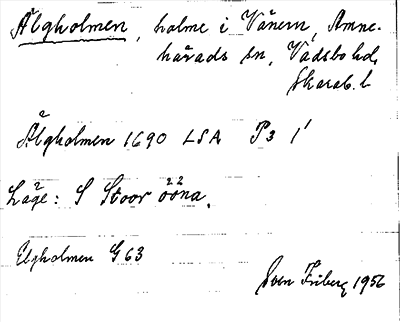 Älgholmen, holme i Vänern, Amne-
härads sn, Vadsbo hd,
Skarab. l
Älgholmen 1690 LSA P3 1'
Läge: S Stoor ööna.
Elgholmen G63
Sven Friberg 1956